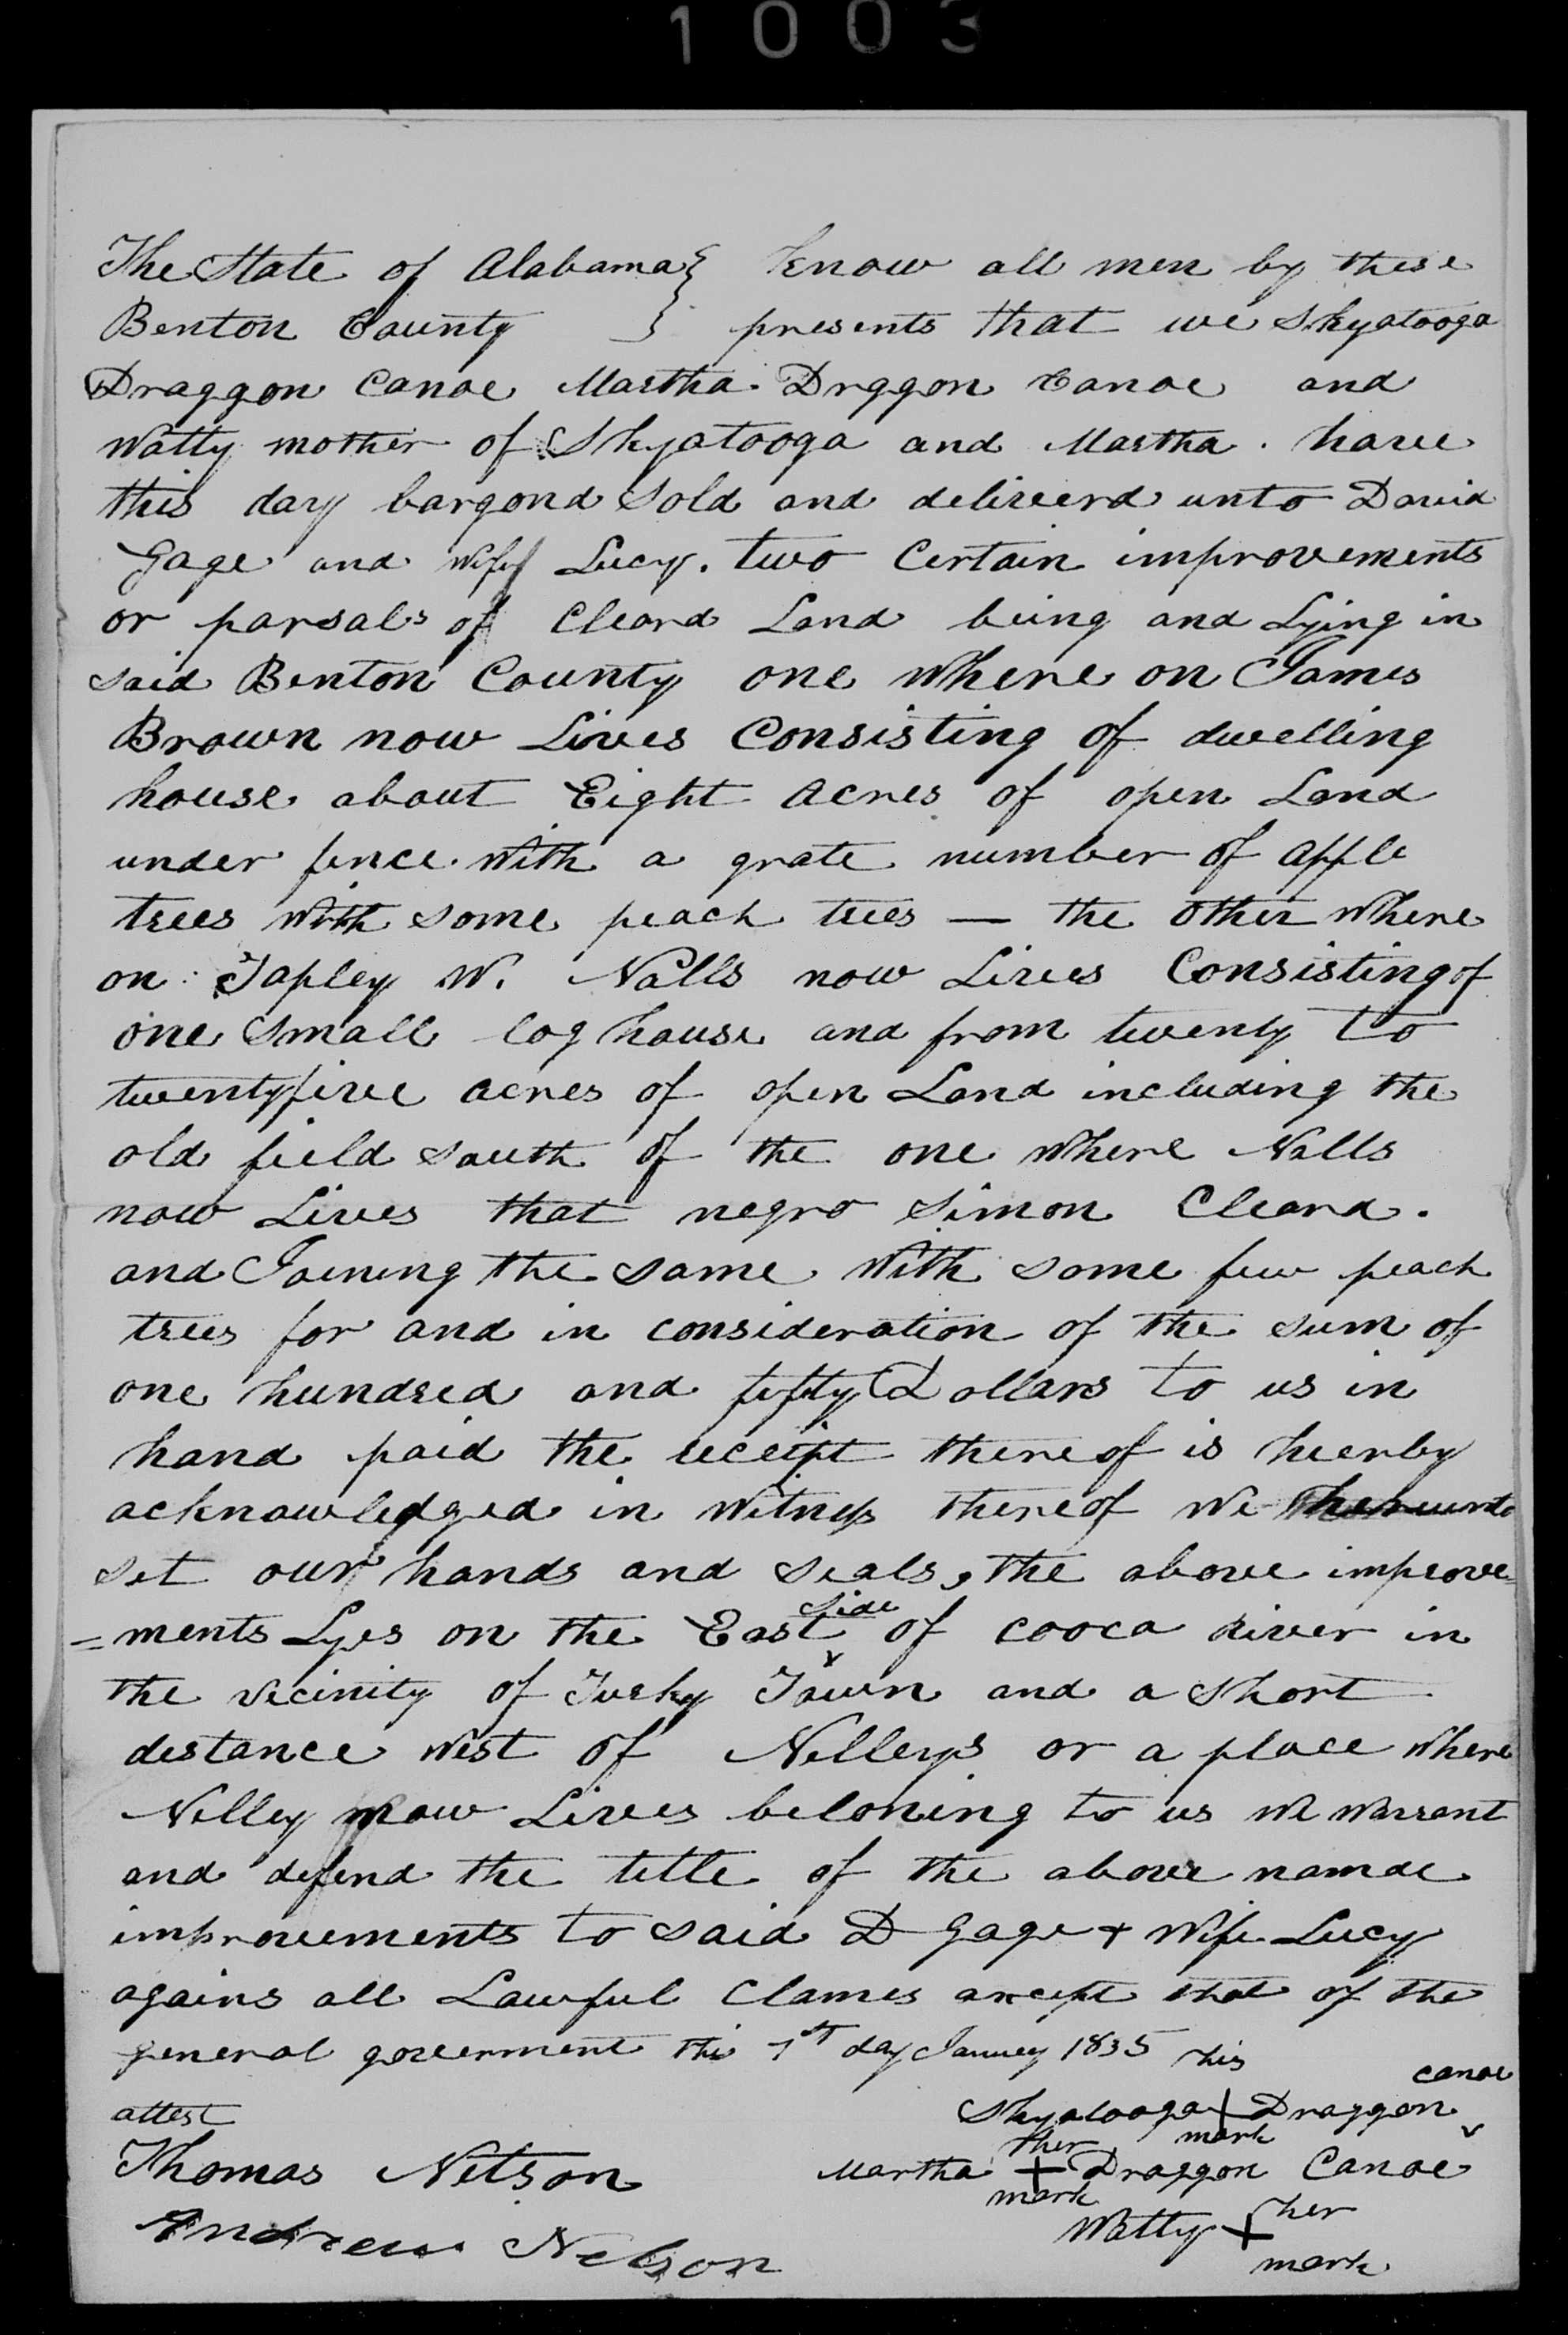 1003
The State of Alabama } Know all men by these
Benton County } presents that we Skyatooga
Draggon Canoe Martha Drggon Canoe and
Watty mother of Skyatooga and Martha. have
this day bargond Sold and deliverd unto David
Gage and wife Lucy. two Certain improvements
or parsals of Cleard Land being and Lying in
said Benton County one where on James
Brown now Lives Consisting of dwelling
house about Eight Acres of open Land
under fence with a grate number of apple
trees with some peach trees — the other where
on Tapley W. Nalls now Lives Consisting of
one Small log house and from twenty to
twentyfive acres of open Land including the
old field south of the one where Nalls
now Lives that negro Simon Cleard.
and Joening the same with some few peach
trees for and in consideration of the sum of
one hundred and fifty Dollars to us in
hand paid the receipt thereof is heerby
acknowledged in witness thereof we
set our hands and seals, the above improve=
=ments Lyes on the East side of cooca River in
the vicinity of Turky Town and a short
distance west of Nelleys or a place where
Nelley now Lives beloning to us we warrant
and defend the title of the above namde
improvements to said D Gage + wife Lucy
agains all Lawful Clames except that of the
general goverment this 1st day Januey 1835
attest
his
Skyatooga + Draggon canoe
mark
Thomas Nelson
her
Martha + Draggon Canoe
mark
Andrew Nelson
her
Watty +
mark